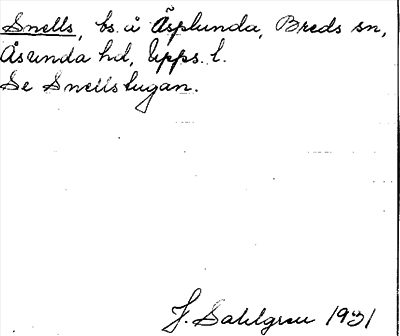 Snells, bs. å Äsplunda, Breds sn,
Åsunda hd, Upps. l.
Se Snellstugan.
J. Sahlgren 1931